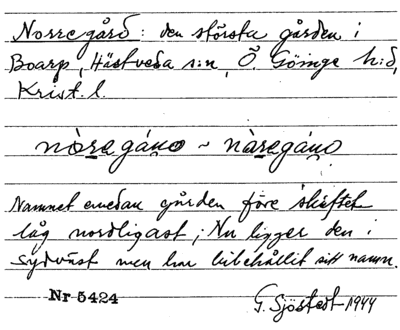 Norregård: den största gården i
Boarp, Hästveda s:n, Ö. Göinge h:d,
Krist. l.
nòregáɳo ~ nàregáɳo
Namnet emedan gården före skiftet
låg nordligast; Nu ligger den i
sydväst men har bibehållit sitt namn.
Nr 5424 G. Sjöstedt 1944